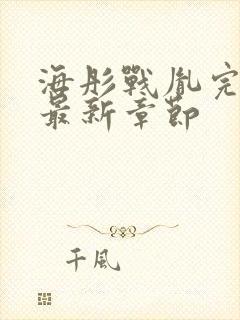 海彤戰胤完
最新章節
千風